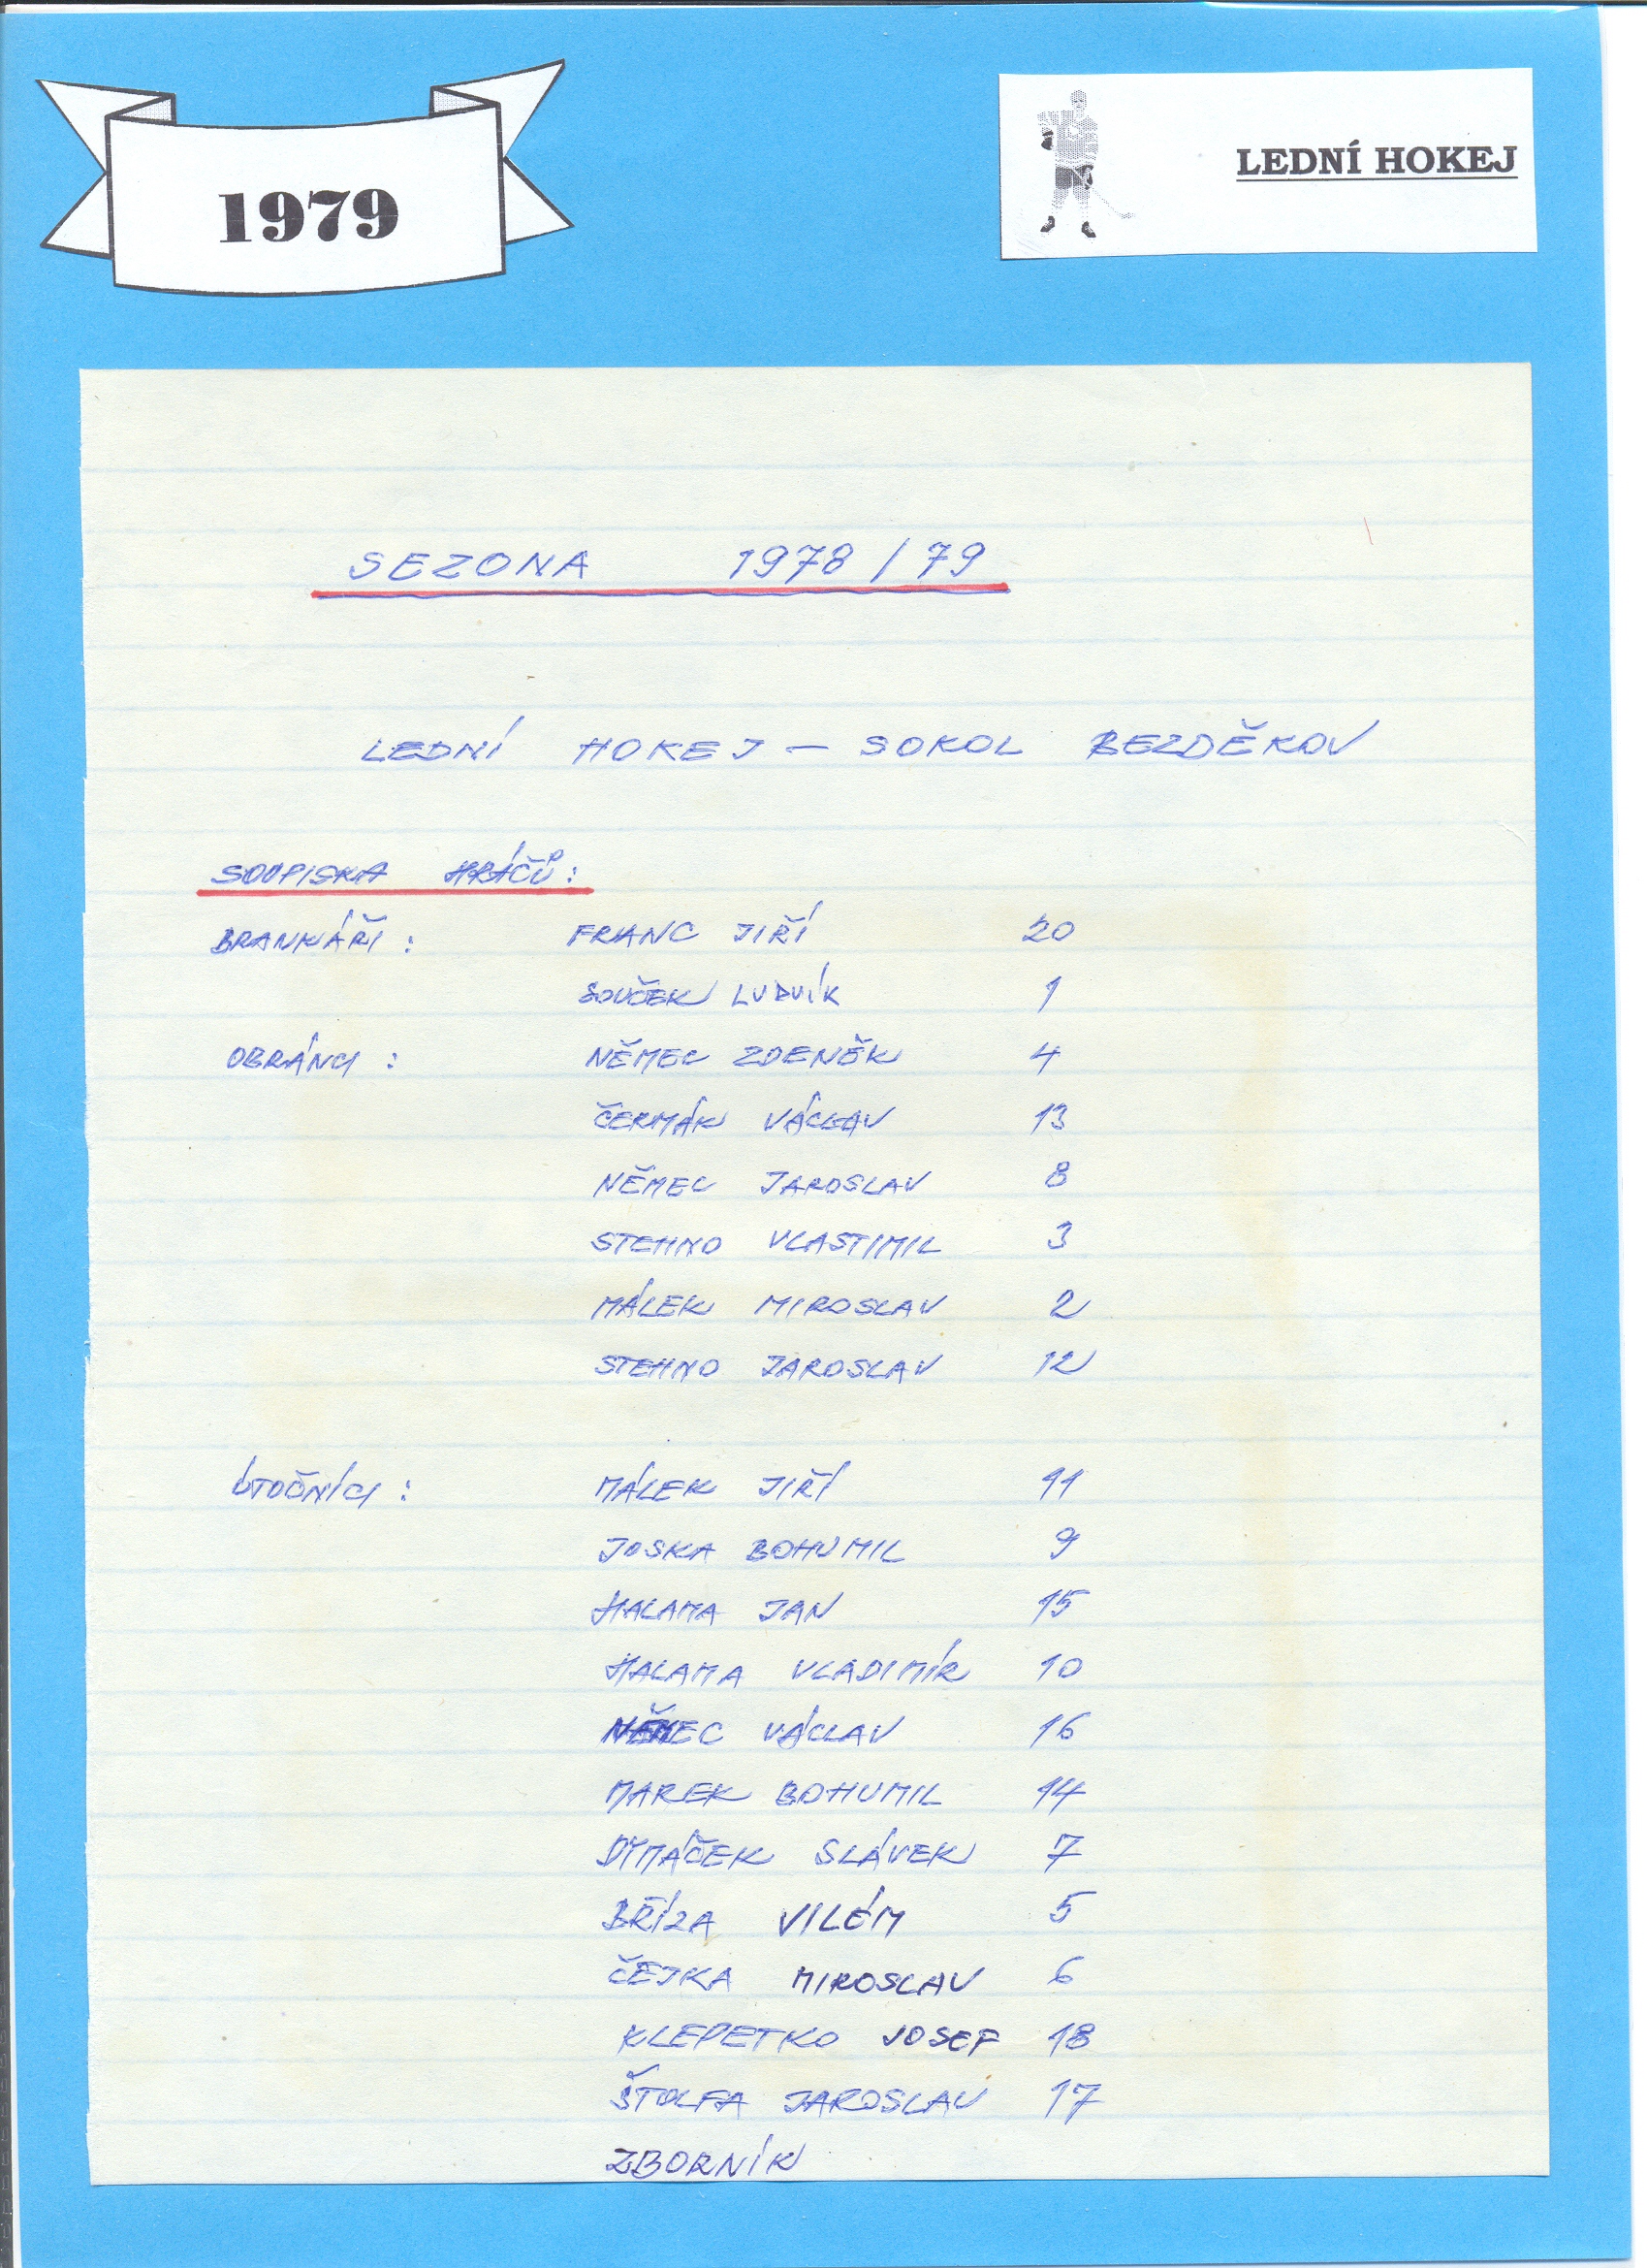 1979
LEDNÍ HOKEJ
SEZONA 1978/79
LEDNÍ HOKEJ - SOKOL BEZDĚKOV
SOUPISKA HRÁČŮ:
BRANKÁŘI: FRANC JIŘÍ 20
SOUČEK LUDVÍK 1
OBRÁNCI: NĚMEC ZDENĚK 4
ČERMÁK VÁCLAV 13
NĚMEC JAROSLAV 8
STEHNO VLASTIMIL 3
MÁLEK MIROSLAV 2
STEHNO JAROSLAV 12
ÚTOČNÍCI: MÁLEK JIŘÍ 11
JOSKA BOHUMIL 9
HALAMA JAN 15
HALAMA VLADIMÍR 10
NĚMEC VÁCLAV 16
MAREK BOHUMIL 14
DYMÁČEK SLÁVEK 7
BŘÍZA VILÉM 5
ČEJKA MIROSLAV 6
KLEPETKO JOSEF 18
ŠTOLFA JAROSLAV 17
ZBORNÍK